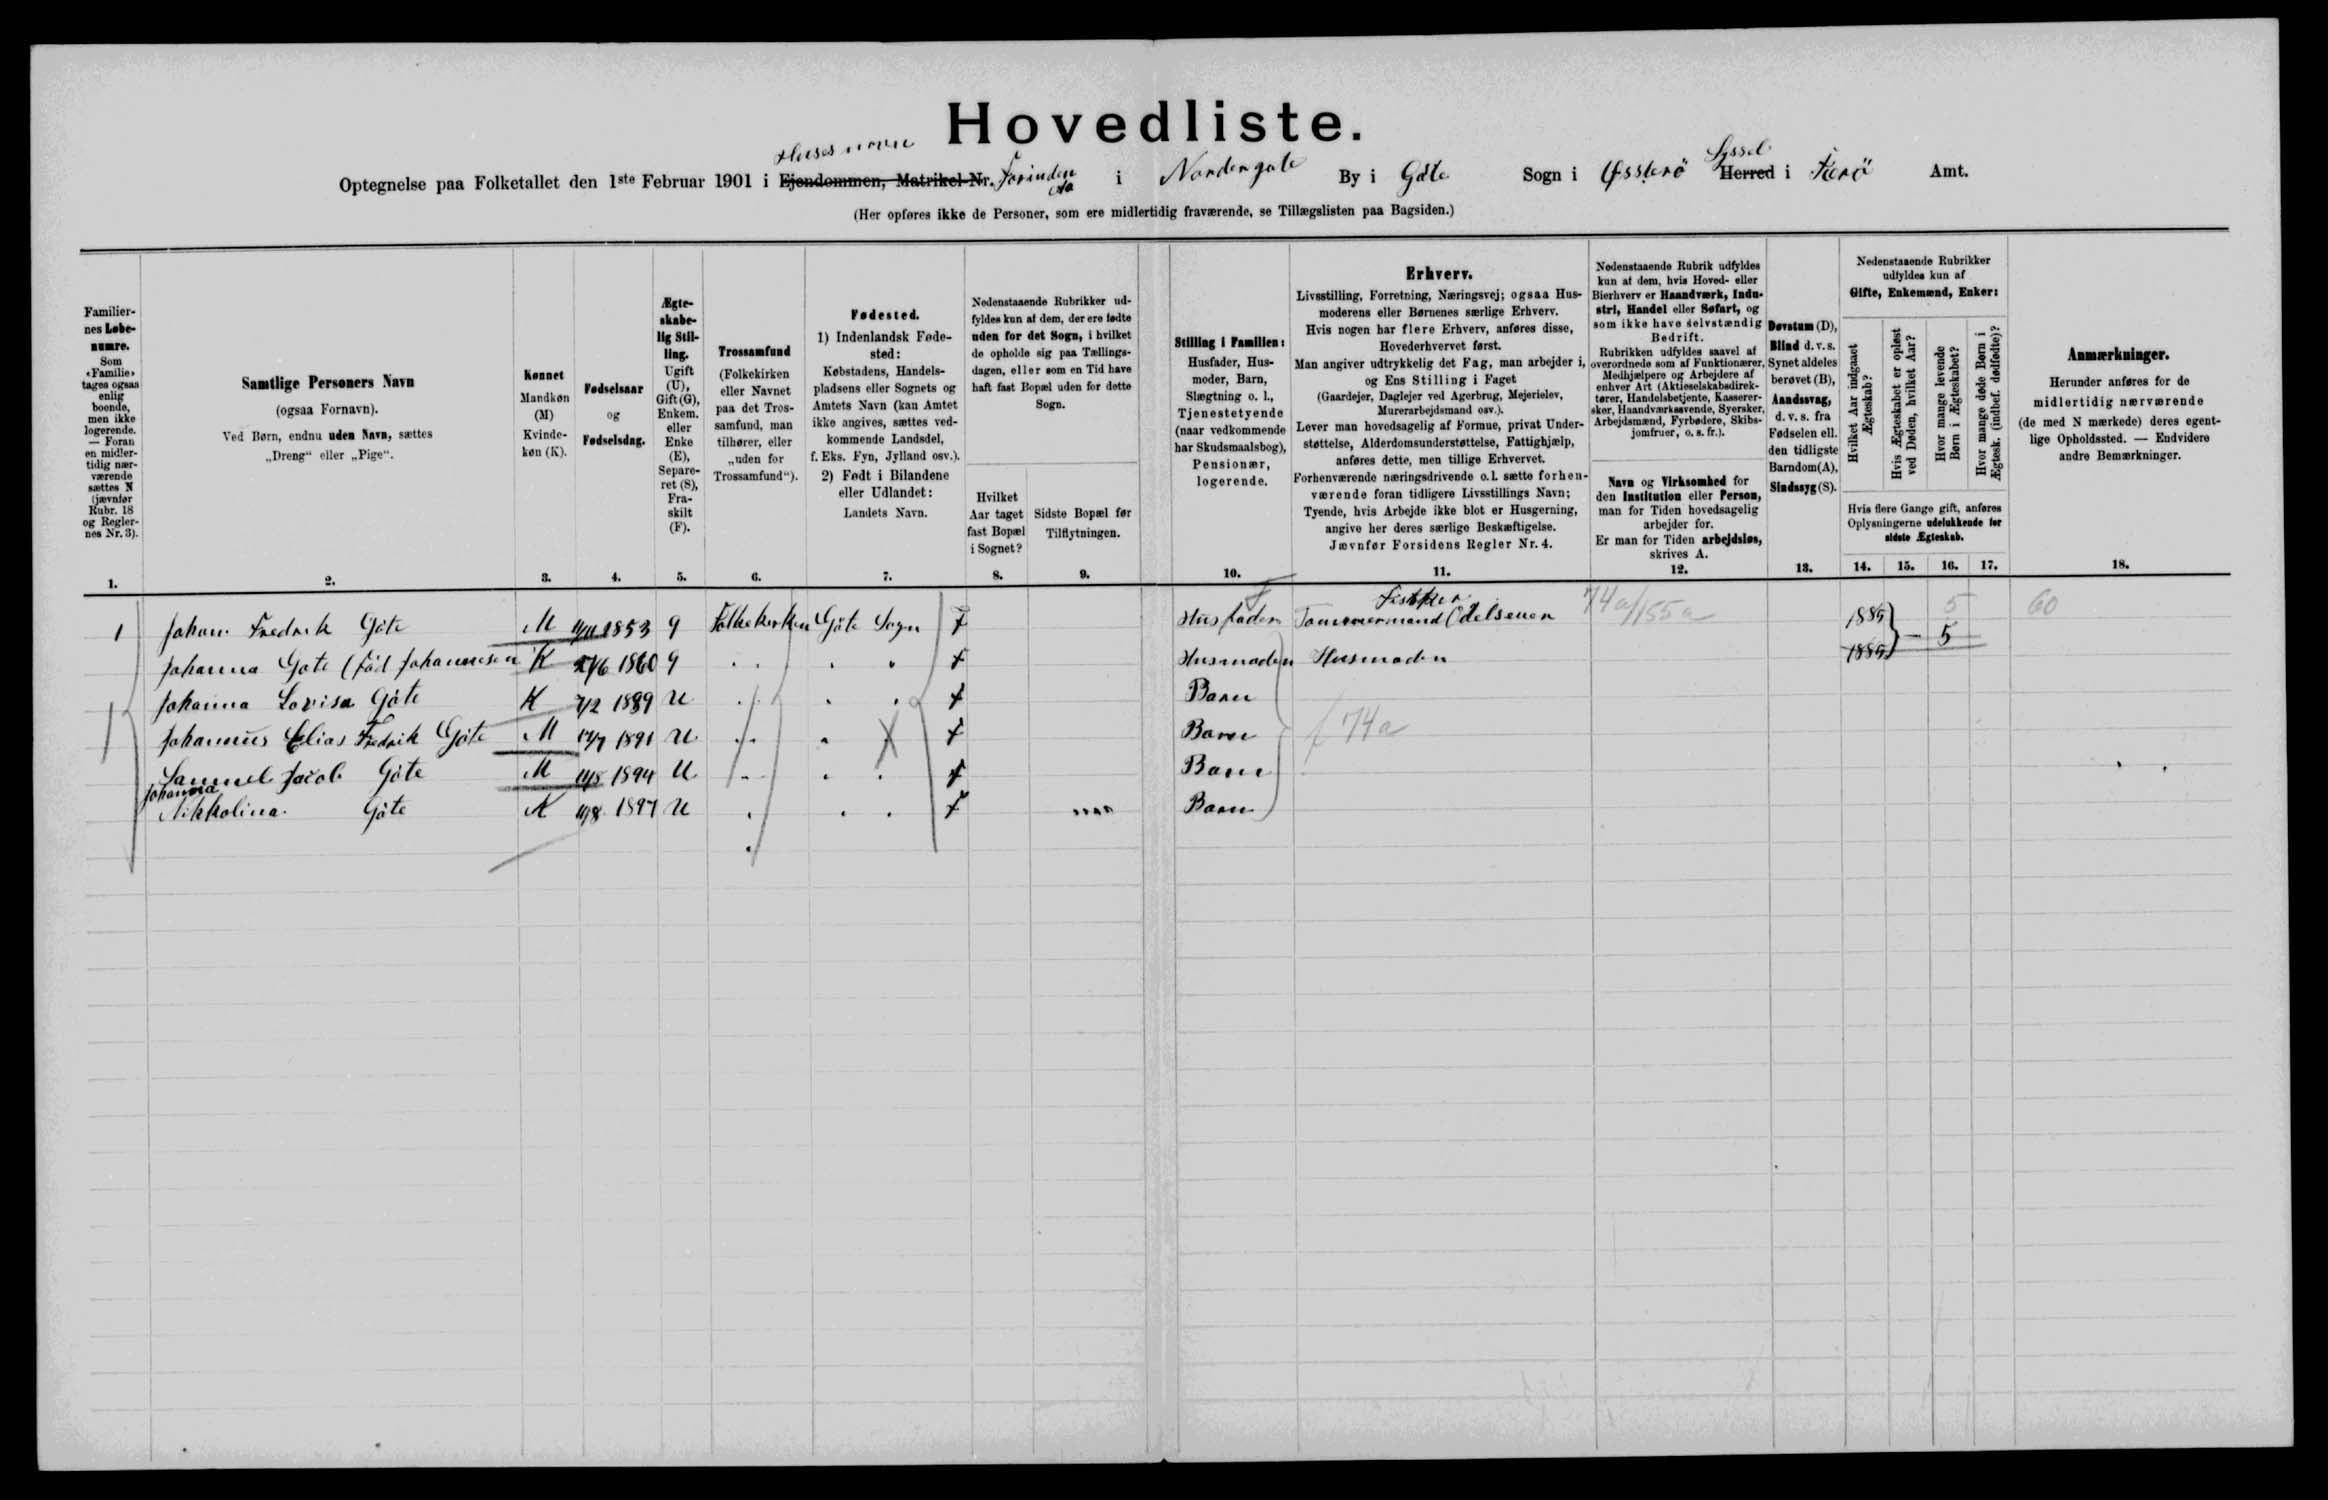 Hovedliste.
Husesnavn
Optegnelse paa Folketallet den 1ste Februar 1901 i Ejendommen, Matrikel-Nr. Forinden Aa i Nordengöte By i Göte Sogn i Østerö Syssel Herred i Færö Amt.
(Her opføres ikke de Personer, som ere midlertidig fraværende, se Tillægslisten paa Bagsiden.)
Familiernes Løbenumre.
Som «Familie» tages ogsaa enlig boende, men ikke logerende. — Foran en midlertidig nærværende sættes N (jævnfør Rubr. 18 og Reglernes Nr. 3).
1.
Samtlige Personers Navn
(ogsaa Fornavn).
Ved Børn, endnu uden Navn, sættes
„Dreng“ eller „Pige“.
2.
Kønnet
Mandkøn (M)
Kvindekøn (K).
3.
Fødselsaar
og
Fødselsdag.
4.
Ægteskabelig Stilling.
Ugift (U), Gift (G), Enkem. eller Enke (E), Separeret (S), Fraskilt (F).
5.
Trossamfund
(Folkekirken eller Navnet paa det Trossamfund, man tilhører, eller „uden for Trossamfund“).
6.
Fødested.
1) Indenlandsk Fødested:
Købstadens, Handelspladsens eller Sognets og Amtets Navn (kan Amtet ikke angives, sættes vedkommende Landsdel, f. Eks. Fyn, Jylland osv.).
2) Født i Bilandene eller Udlandet:
Landets Navn.
7.
Nedenstaaende Rubrikker udfyldes kun af dem, der ere fødte uden for det Sogn, i hvilket de opholde sig paa Tællingsdagen, eller som en Tid have haft fast Bopæl uden for dette Sogn.
Hvilket Aar taget fast Bopæl i Sognet?
8.
Sidste Bopæl før Tilflytningen.
9.
Stilling i Familien:
Husfader, Husmoder, Barn, Slægtning o. l., Tjenestetyende (naar vedkommende har Skudsmaalsbog), Pensionær, logerende.
10.
Erhverv.
Livsstilling, Forretning, Næringsvej; ogsaa Husmoderens eller Børnenes særlige Erhverv.
Hvis nogen har flere Erhverv, anføres disse, Hovederhvervet først.
Man angiver udtrykkelig det Fag, man arbejder i, og Ens Stilling i Faget
(Gaardejer, Daglejer ved Agerbrug, Mejerielev, Murerarbejdsmand osv.).
Lever man hovedsagelig af Formue, privat Understøttelse, Alderdomsunderstøttelse, Fattighjælp, anføres dette, men tillige Erhvervet.
Forhenværende næringsdrivende o. l. sætte forhenværende foran tidligere Livsstillings Navn;
Tyende, hvis Arbejde ikke blot er Husgerning, angive her deres særlige Beskæftigelse.
Jævnfør Forsidens Regler Nr. 4.
11.
Nedenstaaende Rubrik udfyldes kun af dem, hvis Hoved- eller Bierhverv er Haandværk, Industri, Handel eller Søfart, og som ikke have selvstændig Bedrift.
Rubrikken udfyldes saavel af overordnede som af Funktionærer, Medhjælpere og Arbejdere af enhver Art (Aktieselskabsdirektører, Handelsbetjente, Kasserersker, Haandværkssvende, Syersker, Arbejdsmænd, Fyrbødere, Skibsjomfruer, o. s. fr.).
Navn og Virksomhed for den Institution eller Person, man for Tiden hovedsagelig arbejder for.
Er man for Tiden arbejdsløs, skrives A.
12.
Døvstum (D), Blind d. v. s. Synet aldeles berøvet (B), Aandssvag, d. v. s. fra Fødselen ell. den tidligste Barndom (A), Sindssyg (S).
13.
Nedenstaaende Rubrikker udfyldes kun af
Gifte, Enkemænd, Enker:
Hvilket Aar indgaaet Ægteskab?
Hvis Ægteskabet er opløst ved Døden, hvilket Aar?
Hvor mange levende Børn i Ægteskabet?
Hvor mange døde Børn i Ægtesk. (indbef. dødfødte)?
Hvis flere Gange gift, anføres Oplysningerne udelukkende for sidste Ægteskab.
14. 15. 16. 17.
Anmærkninger.
Herunder anføres for de midlertidig nærværende (de med N mærkede) deres egentlige Opholdssted. — Endvidere andre Bemærkninger.
18.
Fisker 74a/155a 5 60
1 Johan Fredrik Göte M 1853 g Folkekirken Göte Sogn f Husfader Tømmermand Odelsener 1889 — 5
Johanna Göte (föd Johannesen K 27/6 1860 g " " f Husmoder Husmoder 1889
Johanna Lovisa Göte K 7/2 1889 U " " f Barn
Johannes Elias Fredrik Göte M 17/7 1891 U " " f Barn 74a
Samuel Jacob Göte M 1894 U " " f Barn
Johanna
Nikkolina Göte K 11/8 1897 U " " f Barn